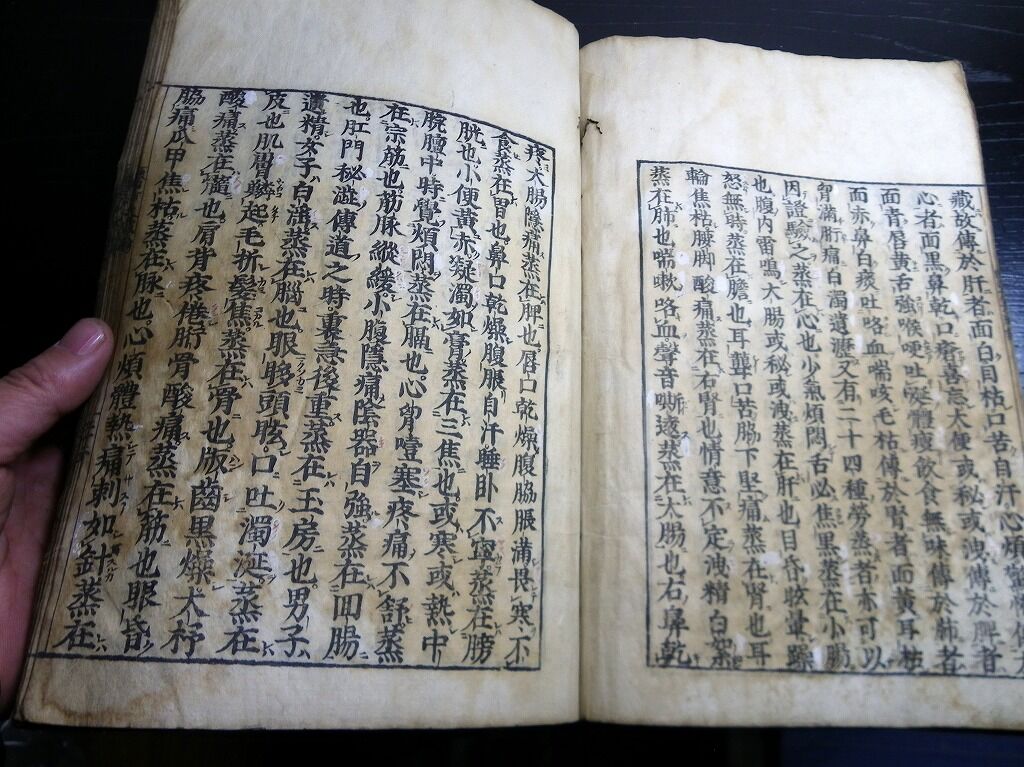 藏故傳於肝者面白目枯口苦自汗心煩驚
心者面黑鼻乾口瘡喜忘大便或秘或洩傳於脾者
面青唇黄舌強喉哽吐涎體瘦飲食無味傳於肺者
面赤鼻白痰吐咯血喘咳毛枯傳於腎者面黄耳枯
胷滿䯒痛白濁遺瀝又有二十四種勞蒸者亦可以
因證驗之蒸在心也少氣煩悶舌必焦黑蒸在小腸
也腹内雷鳴大腸或秘或洩蒸在肝也目昏眩暈躁
怒無時蒸在膽也耳聾口苦脇下堅痛蒸在腎也耳
輪焦枯腰脚酸痛蒸在右腎也情意不定洩精白絮
蒸在肺也喘嗽咯血聲音嘶遂蒸在大腸也右鼻乾
疼大腸隱痛蒸在脾也唇口乾燥腹脇脹滿畏寒不
食蒸在胃也鼻口乾燥腹脹自汗睡臥不寧蒸在膀
胱也小便黄赤凝濁如膏蒸在三焦也或寒或熱中
脘膻中時覺煩悶蒸在膈也心胷噎塞疼痛不舒蒸
在宗筋也筋脉縱緩小腹隱痛陰器自強蒸在回腸
也肛門秘澁傳道之時裏急後重蒸在玉房也男子
遺精女子白淫蒸在腦也眼眵頭眩口吐濁涎蒸在
皮也肌膚鱗起毛折髪焦蒸在骨也版齒黒燥大杼
酸痛蒸在髓也肩背疼倦䯒骨酸痛蒸在筋也眼昏
脇痛爪甲焦枯蒸在脉也心煩體熱痛刺如針蒸在